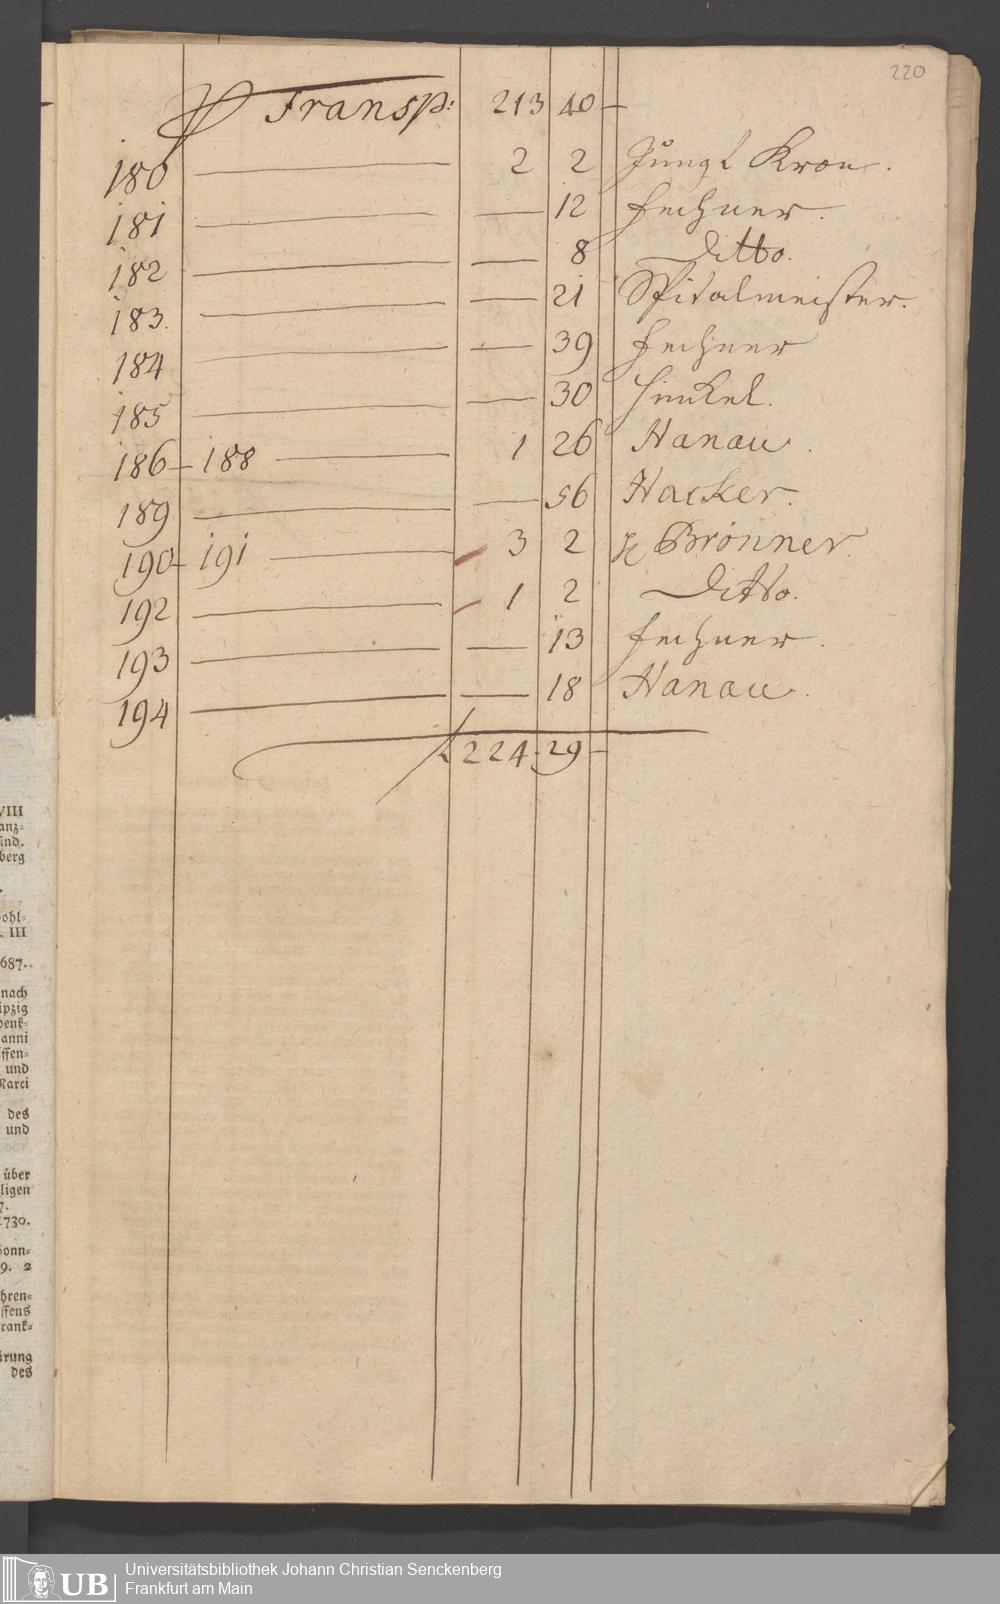 220
Transp: 213 40 —
180 — 2 2 Jungf Kron.
181 — — 12 Fechner.
182 — — 8 Ditto.
183. — — 21 Spitalmeister.
184 — — 39 Fechner
185 — — 30 Hinkel.
186 – 188 — 1 26 Hanau.
189 — — 56 Hacker.
190 – 191 — 3 2 Brönner.
192 — 1 2 Ditto.
193 — — 13 Fechner.
194 — — 18 Hanau.
224 . 29 —
VIII
anz=
ind.
berg
ohl=
. III
687.
nach
ipzig
denk=
anni
ffen=
und
Marci
des
und
über
ligen
7.
1730.
Sonn=
9. 2
hren=
ffens
rank=
ärung
des
UB
Universitätsbibliothek Johann Christian Senckenberg
Frankfurt am Main